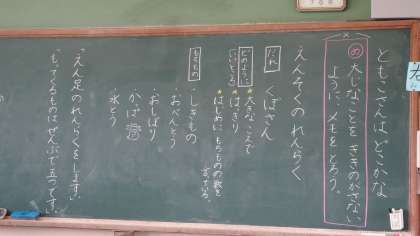 ともこさんは どこかな
め 大じなことを ききのがさない
ように、メモを とろう。
えんそくの れんらく
だれ くぼさん
どのように
・大きな こえで
・はっきり
・はじめに もちものの数を
もちもの
・しきもの
・おべんとう
・おしぼり
・かっぱ
・水とう
「えん足の れんらくを します。
「もってくるものは ぜんぶで 五つです。